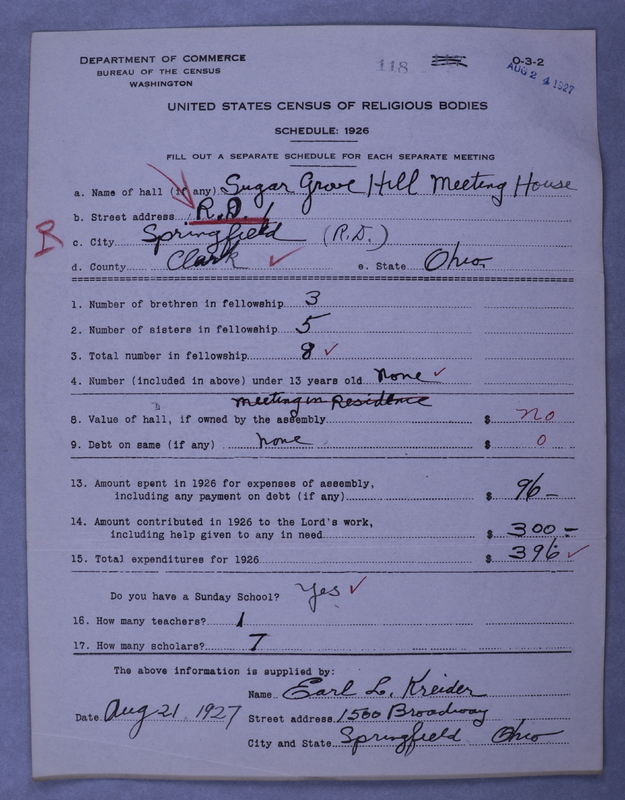 DEPARTMENT OF COMMERCE
BUREAU OF THE CENSUS
WASHINGTON
118
O-3-2
AUG 24 1927
UNITED STATES CENSUS OF RELIGIOUS BODIES
SCHEDULE: 1926
FILL OUT A SEPARATE SCHEDULE FOR EACH SEPARATE MEETING
a. Name of hall (if any) Sugar Grove Hill Meeting House
b. Street address R.D. 1
R
c. City Springfield (R.D.)
d. County Clark ✓ e. State Ohio
1. Number of brethren in fellowship 3
2. Number of sisters in fellowship 5
3. Total number in fellowship 8 ✓
4. Number (included in above) under 13 years old none ✓
meeting in Residence
8. Value of hall, if owned by the assembly $ no
9. Debt on same (if any) none $ 0
13. Amount spent in 1926 for expenses of assembly,
including any payment on debt (if any) $ 96 –
14. Amount contributed in 1926 to the Lord's work,
including help given to any in need $ 300 –
15. Total expenditures for 1926 $ 396 ✓
Do you have a Sunday School? Yes ✓
16. How many teachers? 1
17. How many scholars? 7
The above information is supplied by:
Name Earl L. Kreider
Date Aug 21, 1927 Street address 1560 Broadway
City and State Springfield Ohio